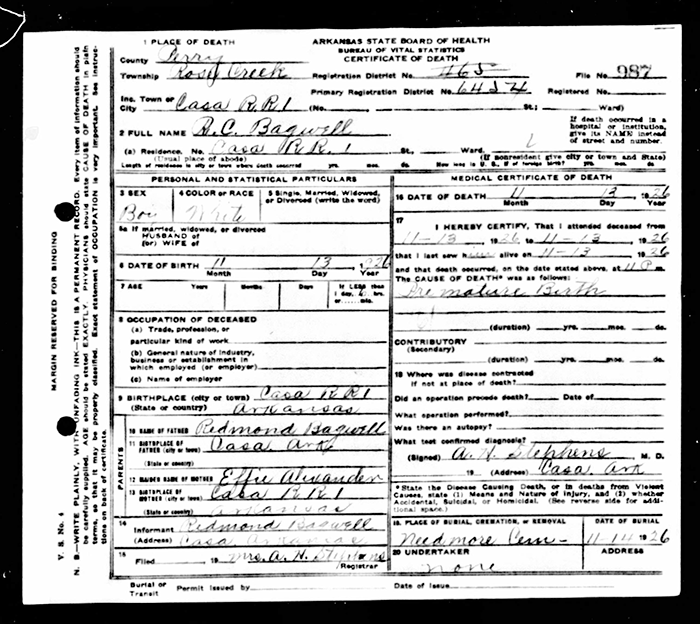 ARKANSAS STATE BOARD OF HEALTH
BUREAU OF VITAL STATISTICS
CERTIFICATE OF DEATH
1 PLACE OF DEATH
County Perry
Township Rose Creek
Registration District No. 465 File No. 987
Primary Registration District No. 6454 Registered No.
Inc. Town or City Casa R.R.1 (No. St.; Ward)
2 FULL NAME R.C. Bagwell
If death occurred in a hospital or institution, give its NAME instead of street and number.
(a) Residence. No. Casa R.R.1 St., Ward.
(Usual place of abode) (If nonresident give city or town and State)
Length of residence in city or town where death occurred yrs. mos. ds. How long in U. S., if of foreign birth?
PERSONAL AND STATISTICAL PARTICULARS
3 SEX Boy
4 COLOR OR RACE White
5 Single, Married, Widowed, or Divorced (write the word)
5a If married, widowed, or divorced
HUSBAND of
(or) WIFE of
6 DATE OF BIRTH 11 13, 1926
Month Day Year
7 AGE Years Months Days If LESS than 1 day, hrs. or min.
8 OCCUPATION OF DECEASED
(a) Trade, profession, or
particular kind of work
(b) General nature of industry,
business or establishment in
which employed (or employer)
(c) Name of employer
9 BIRTHPLACE (city or town) Casa R R 1
(State or country) Arkansas
PARENTS
10 NAME OF FATHER Redmond Bagwell
11 BIRTHPLACE OF FATHER (city or town) Casa Ark
(State or country)
12 MAIDEN NAME OF MOTHER Effie Alexander
13 BIRTHPLACE OF MOTHER (city or town) Casa R R 1
(State or country) Arkansas
14 Informant Redmond Bagwell
(Address) Casa Arkansas
15 Filed 19 Mrs. A. H. Stephens
Registrar
MEDICAL CERTIFICATE OF DEATH
16 DATE OF DEATH 11 13 1926
Month Day Year
17
I HEREBY CERTIFY, That I attended deceased from
11-13, 1926 to 11-13, 1926
that I last saw h alive on 11-13, 1926
and that death occurred, on the date stated above, at 11 P m.
The CAUSE OF DEATH* was as follows:
Premature Birth
(duration) yrs. mos. ds.
CONTRIBUTORY
(Secondary)
(duration) yrs. mos. ds.
18 Where was disease contracted
if not at place of death?
Did an operation precede death? Date of
What operation performed?
Was there an autopsy?
What test confirmed diagnosis?
(Signed) A. H. Stephens M. D.
19 (Address) Casa Ark
*State the Disease Causing Death, or in deaths from Violent Causes, state (1) Means and Nature of Injury, and (2) whether Accidental, Suicidal, or Homicidal. (See reverse side for additional space.)
19. PLACE OF BURIAL, CREMATION, OR REMOVAL DATE OF BURIAL
Needmore Cem- 11-14 1926
20 UNDERTAKER ADDRESS
None
Burial or Transit Permit issued by Date of Issue
MARGIN RESERVED FOR BINDING
V. S. No. 4
N. B.—WRITE PLAINLY, WITH UNFADING INK—THIS IS A PERMANENT RECORD. Every item of information should
be carefully supplied. AGE should be stated EXACTLY. PHYSICIANS should state CAUSE OF DEATH in plain
terms, so that it may be properly classified. Exact statement of OCCUPATION is very important. See instruc-
tions on back of certificate.